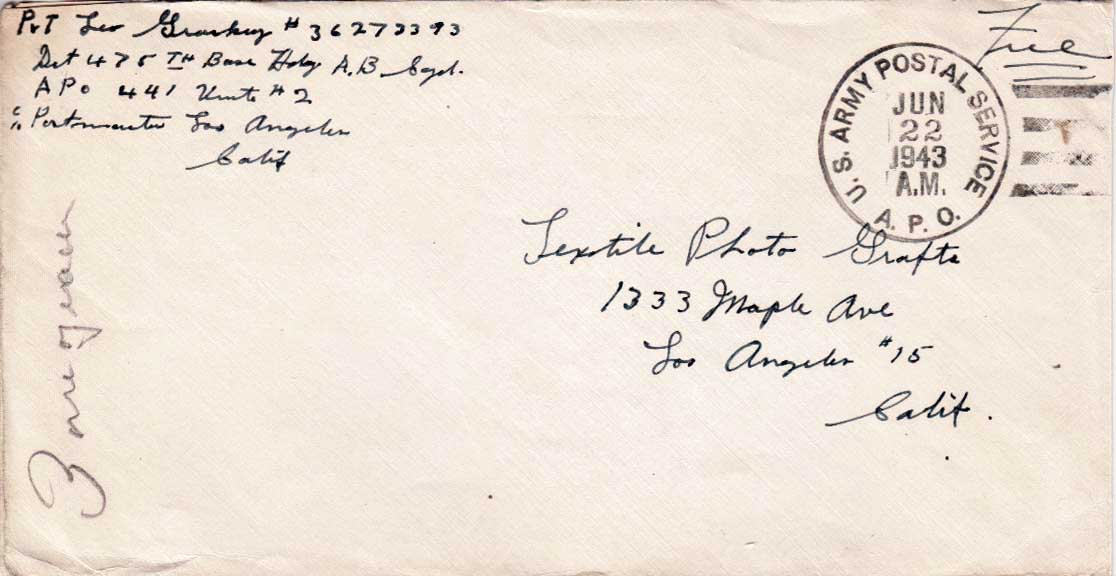 Pvt Leo # 36273393
Det 475 TH Base Hdq A.B Sqd.
APO 441 Unit # 2
c/o Postmaster Los Angeles
Calif
Free
U.S. ARMY POSTAL SERVICE
JUN
22
1943
A.M.
A.P.O.
Textile Photo Grafts
1333 Maple Ave
Los Angeles #15
Calif.